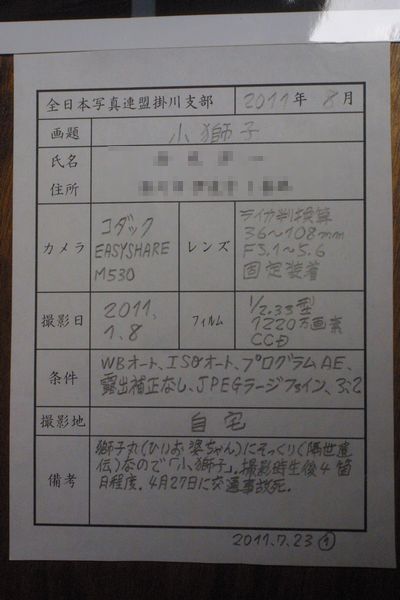 全日本写真連盟掛川支部 2011年 8月
画題 小獅子
氏名
住所
カメラ コダック EASYSHARE M530
レンズ ライカ判換算 36〜108mm F3.1〜5.6 固定装着
撮影日 2011.1.8
フィルム 1/2.33型 1220万画素 CCD
条件 WBオート、ISOオート、プログラムAE、
露出補正なし、JPEGラージファイン、3:2
撮影地 自宅
備考 獅子丸(ひいお婆ちゃん)にそっくり(隔世遺
伝)なので「小獅子」. 撮影時生後4箇
月程度. 4月27日に交通事故死.
2011.7.23 ①